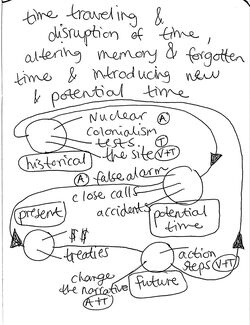 time traveling &
disruption of time,
altering memory & forgotten
time & introducing new
& potential time
Nuclear A
colonialism
tests. T
the site V+T
historical
A false alarm
close calls
accidents
present
potential
time
$$
treaties
action
steps V+T
change
the narrative
A+T
future